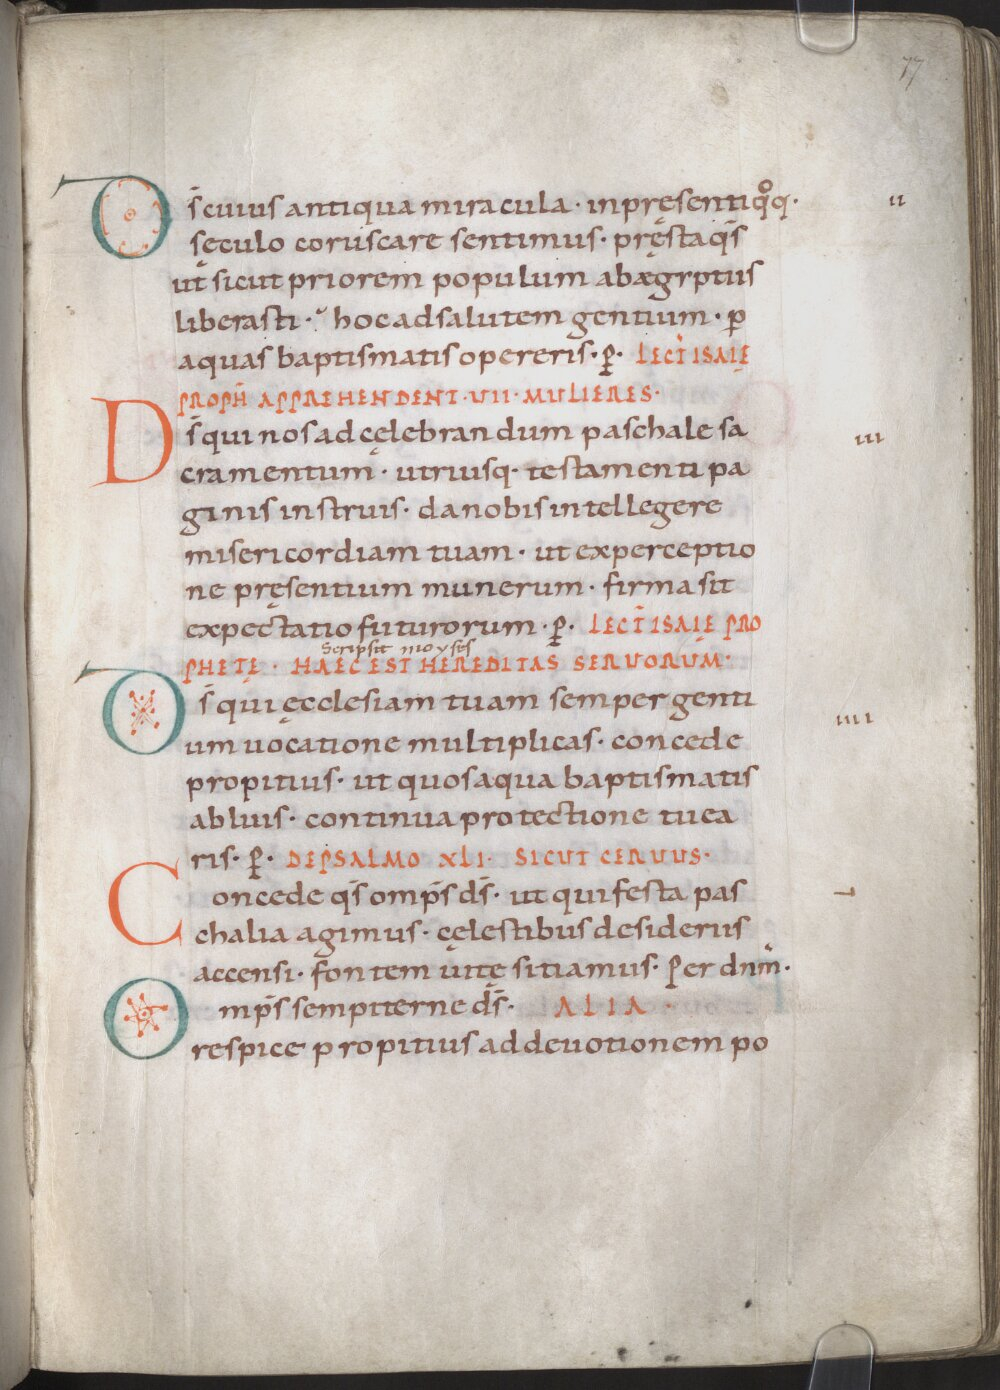 77
Ds̄ cuius antiqua miracula · in pręsenti qͦq ·
sęculo coruscare sentimus · pręsta qs̄
ut sicut priorem populum ab ęgyptiis
liberasti · hoc ad salutem gentium · ꝑ
aquas baptismatis opereris · ꝑ · LECT̄ ISAIĘ
PROPH̄ APPREHENDENT · VII · MULIERES ·
Ds̄ qui nos ad cęlebrandum paschale sa
cramentum · utriusq · testamenti pa
ginis instruis · da nobis intellegere
misericordiam tuam · ut ex perceptio
ne pręsentium munerum · firma sit
expectatio futurorum · ꝑ · LECT̄ ISAIĘ PRO
Scripsit moyses
PHETĘ · HAEC EST HEREDITAS SERVORUM ·
Ds̄ qui ęcclesiam tuam semper genti
um uocatione multiplicas · concede
propitius · ut quos aqua baptismatis
abluis · continua protectione tuea
ris · ꝑ · DE PSALMO XLI · SICUT CERVUS ·
Concede qs̄ omps̄ ds̄ · ut qui festa pas
chalia agimus · cęlestibus desideriis
accensi · fontem uitę sitiamus · Per dnm̄ ·
Omps̄ sempiterne ds̄ · ALIA ·
respice propitius ad deuotionem po
ii
iii
iiii